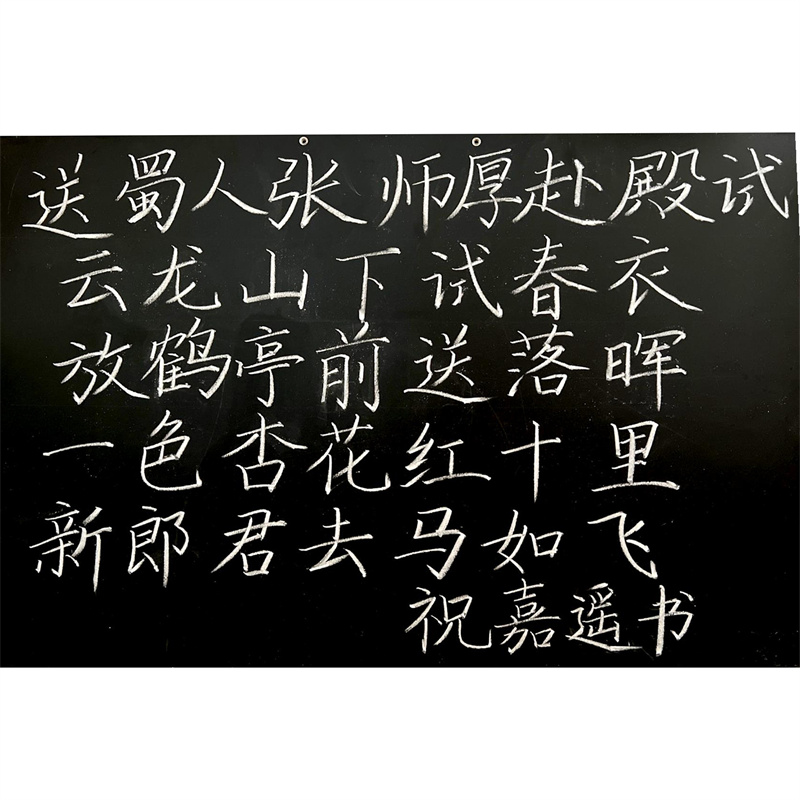 送蜀人张师厚赴殿试
云龙山下试春衣
放鹤亭前送落晖
一色杏花红十里
新郎君去马如飞
祝嘉遥书